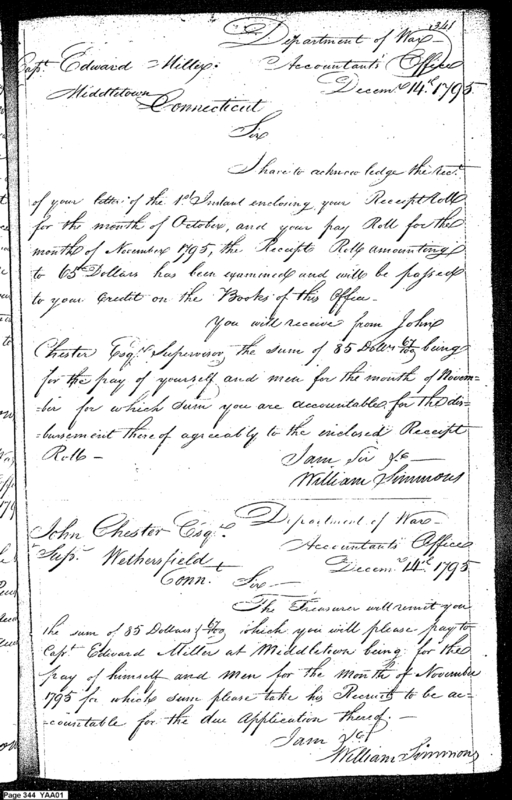 341
Department of War
Capt. Edward Miller. Accountants Office
Middletown Decemr. 14th 1795
Connecticut
Sir
I have to acknowledge the rect.
of your letter of the 1st Instant enclosing your Receipt Roll
for the month of October, and your pay Roll for the
month of November 1795, the Receipt Roll amounting
to 65 Dollars has been examined and will be passed
to your Credit on the Books of this Office -
You will receive from John
Chester Esqr. Supervisor, the sum of 85 Dollrs 67/100 being
for the pay of yourself and men for the month of Novem-
-ber for which sum you are accountable for the dis-
-bursement thereof agreeably to the inclosed Receipt
Roll -
I am Sir &c
William Simmons
John Chester Esqr. Department of War -
Supr. Wethersfield Accountants Office
Conn. Decemr. 14th 1795
Sir -
The Treasurer will remit you
the sum of 85 Dollars & 67/100 which you will please pay to
Capt Edward Miller at Middletown being for the
pay of himself and men for the month of November
1795 for which sum please take his Receipts to be ac-
-countable for the due Application thereof. -
I am &c
William Simmons
Page 344 YAA01